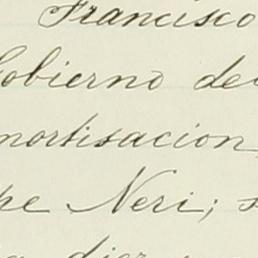 Francisco
Gobierno de
mortisacion
pe Neri; s